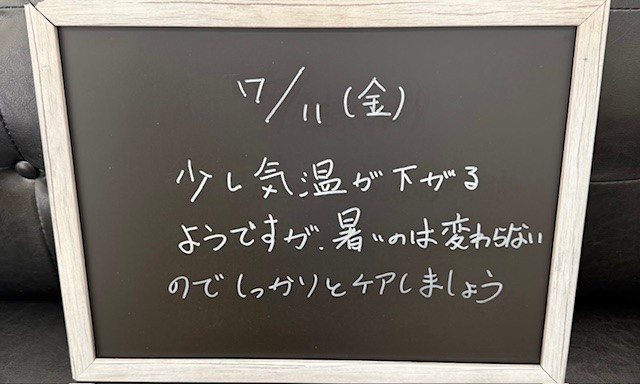 7/11(金)
少し気温が下がる
ようですが、暑いのは変わらない
のでしっかりとケアしましょう